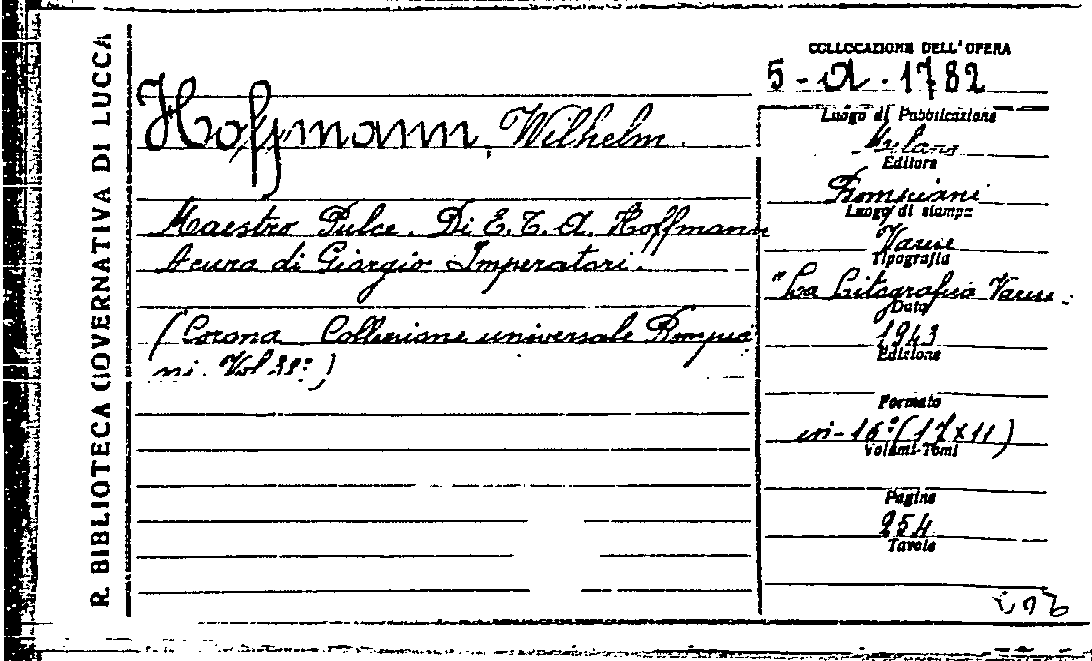 R. BIBLIOTECA GOVERNATIVA DI LUCCA
COLLOCAZIONE DELL'OPERA
5 - A. - 1782
Hoffmann, Wilhelm.
Maestro Pulce. Di E. T. A. Hoffmann
A cura di Giorgio Imperatori.
(Corona Collezione universale Bompia
ni. Vol 38º)
Luogo di Pubblicazione
Milano
Editore
Bompiani
Luogo di stampa
Varese
Tipografia
"La Litografica Varese.
Data
1943
Edizione
Formato
in-16º (17x11)
Volumi-Tomi
Pagine
254
Tavole